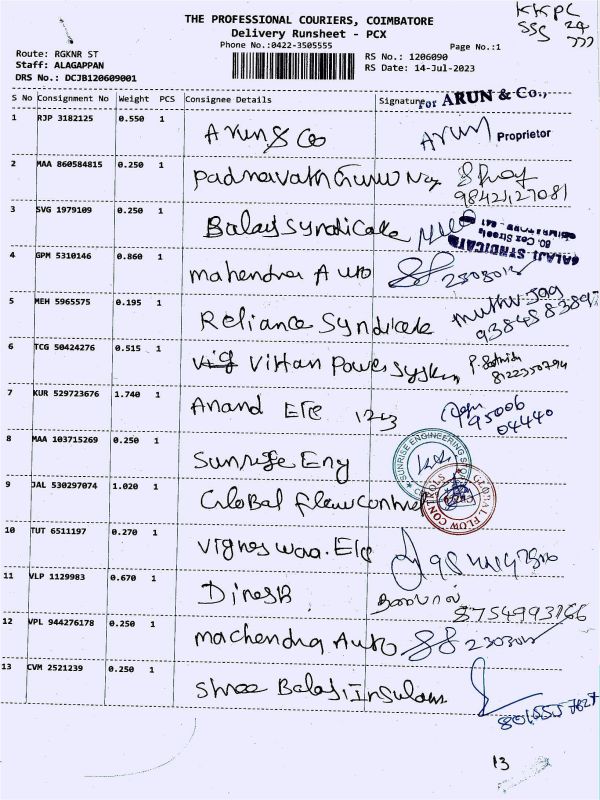 THE PROFESSIONAL COURIERS, COIMBATORE
Delivery Runsheet - PCX
Phone No.:0422-3505555
Page No.:1
KKPC
SSS 24
777
Route: RGKNR ST
Staff: ALAGAPPAN
DRS No.: DCJB120609001
RS No.: 1206090
RS Date: 14-Jul-2023
S No Consignment No Weight PCS Consignee Details Signature
For ARUN & Co.,
1 RJP 3182125 0.550 1 Arun & Co ARUN Proprietor
2 MAA 860584815 0.250 1
9842127081
3 SVG 1979109 0.250 1 Balaji Syndicate
BALAJI SYNDICATE
80, Cox Street
4 GPM 5310146 0.860 1 Mahendra Auto
5 MEH 5965575 0.195 1 Reliance Syndicate
6 TCG 50424276 0.515 1 Power System
7 KUR 529723676 1.740 1 Anand Ele 95006
04440
8 MAA 103715269 0.250 1 Sunrise Eng
SUNRISE ENGINEERING
9 JAL 530297074 1.020 1 Global Flow Control
GLOBAL FLOW CONTROLS
10 TUT 6511197 0.270 1 Ele
11 VLP 1129983 0.670 1 Dinesh
8754993166
12 VPL 944276178 0.250 1 Machendra Auto
13 CVM 2521239 0.250 1 Shree Balaji Insulam
13